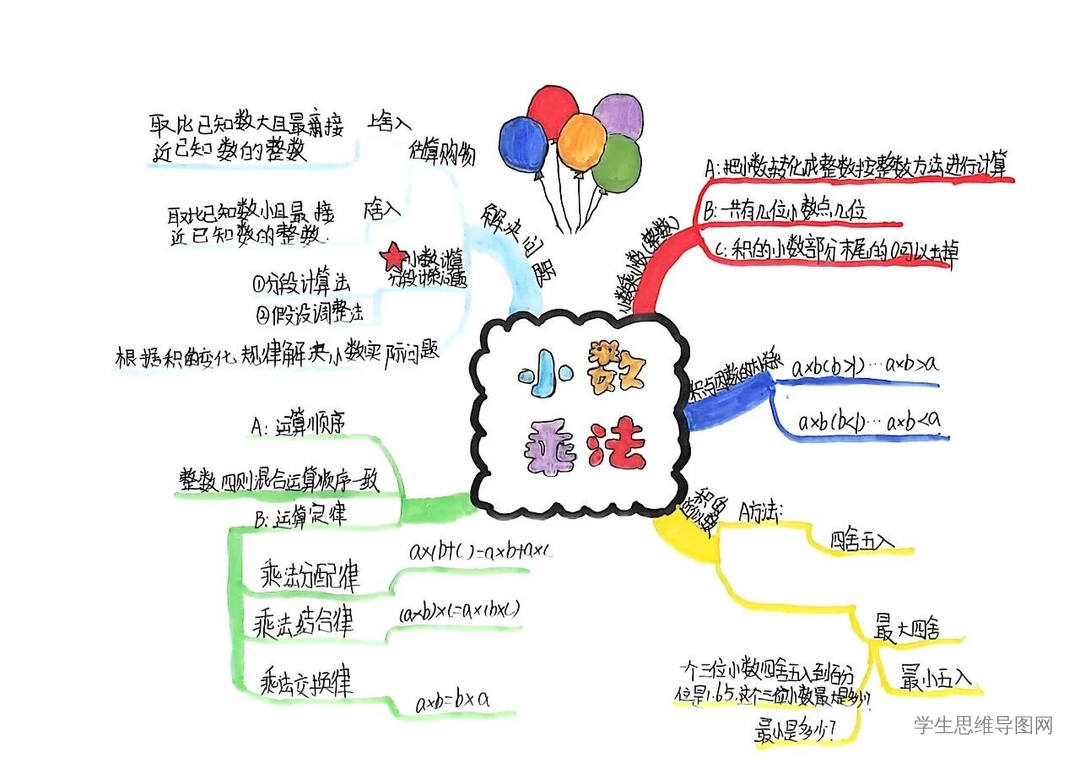 小数
乘法
解决问题
估算购物
上舍入
取比已知数大且最接
近已知数的整数
取比已知数小且最接
近已知数的整数.
小数计算
分段计费问题
①分段计算法
②假设调整法
根据积的变化规律解决小数实际问题
小数乘小数(整数)
A:把小数转化成整数按整数方法进行计算
B:一共有几位小数点几位
C:积的小数部分末尾的0可以去掉
a×b(b>1)…a×b>a
a×b(b<1)…a×b<a
A方法:
四舍五入
最大四舍
最小五入
一个三位小数四舍五入到百分
位是1.65,这个三位小数最大是多少?
最小是多少?
A:运算顺序
整数四则混合运算顺序一致
B:运算定律
乘法分配律
a×(b+c)=a×b+a×c
乘法结合律
(a×b)×c=a×(b×c)
乘法交换律
a×b=b×a
学生思维导图网